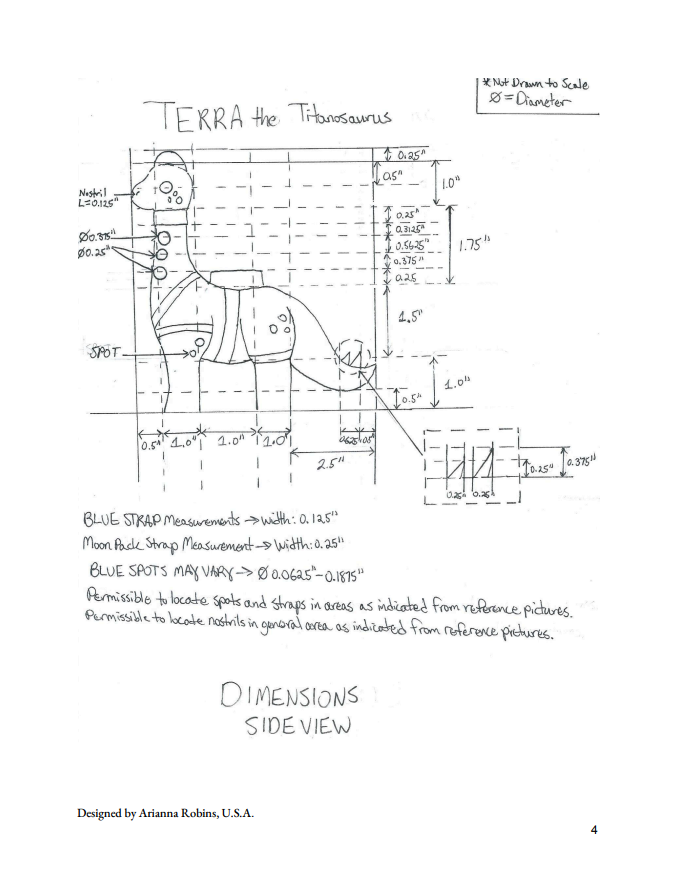 *Not Drawn to Scale
Ø = Diameter
TERRA the Titanosaurus
0.25"
0.5"
1.0"
Nostril
L=0.125"
0.25"
0.3125"
Ø0.375"
0.5625"
1.75"
Ø0.25"
0.375"
0.25
1.5"
SPOT
1.0"
0.5"
0.5" 1.0" 1.0" 1.0" 0.625" 0.5"
2.5"
0.375"
0.25"
0.25" 0.25"
BLUE STRAP Measurements → Width: 0.125"
Moon Pack Strap Measurement → Width: 0.25"
BLUE SPOTS MAY VARY → Ø 0.0625"-0.1875"
Permissible to locate spots and straps in areas as indicated from reference pictures.
Permissible to locate nostrils in general area as indicated from reference pictures.
DIMENSIONS
SIDE VIEW
Designed by Arianna Robins, U.S.A.
4